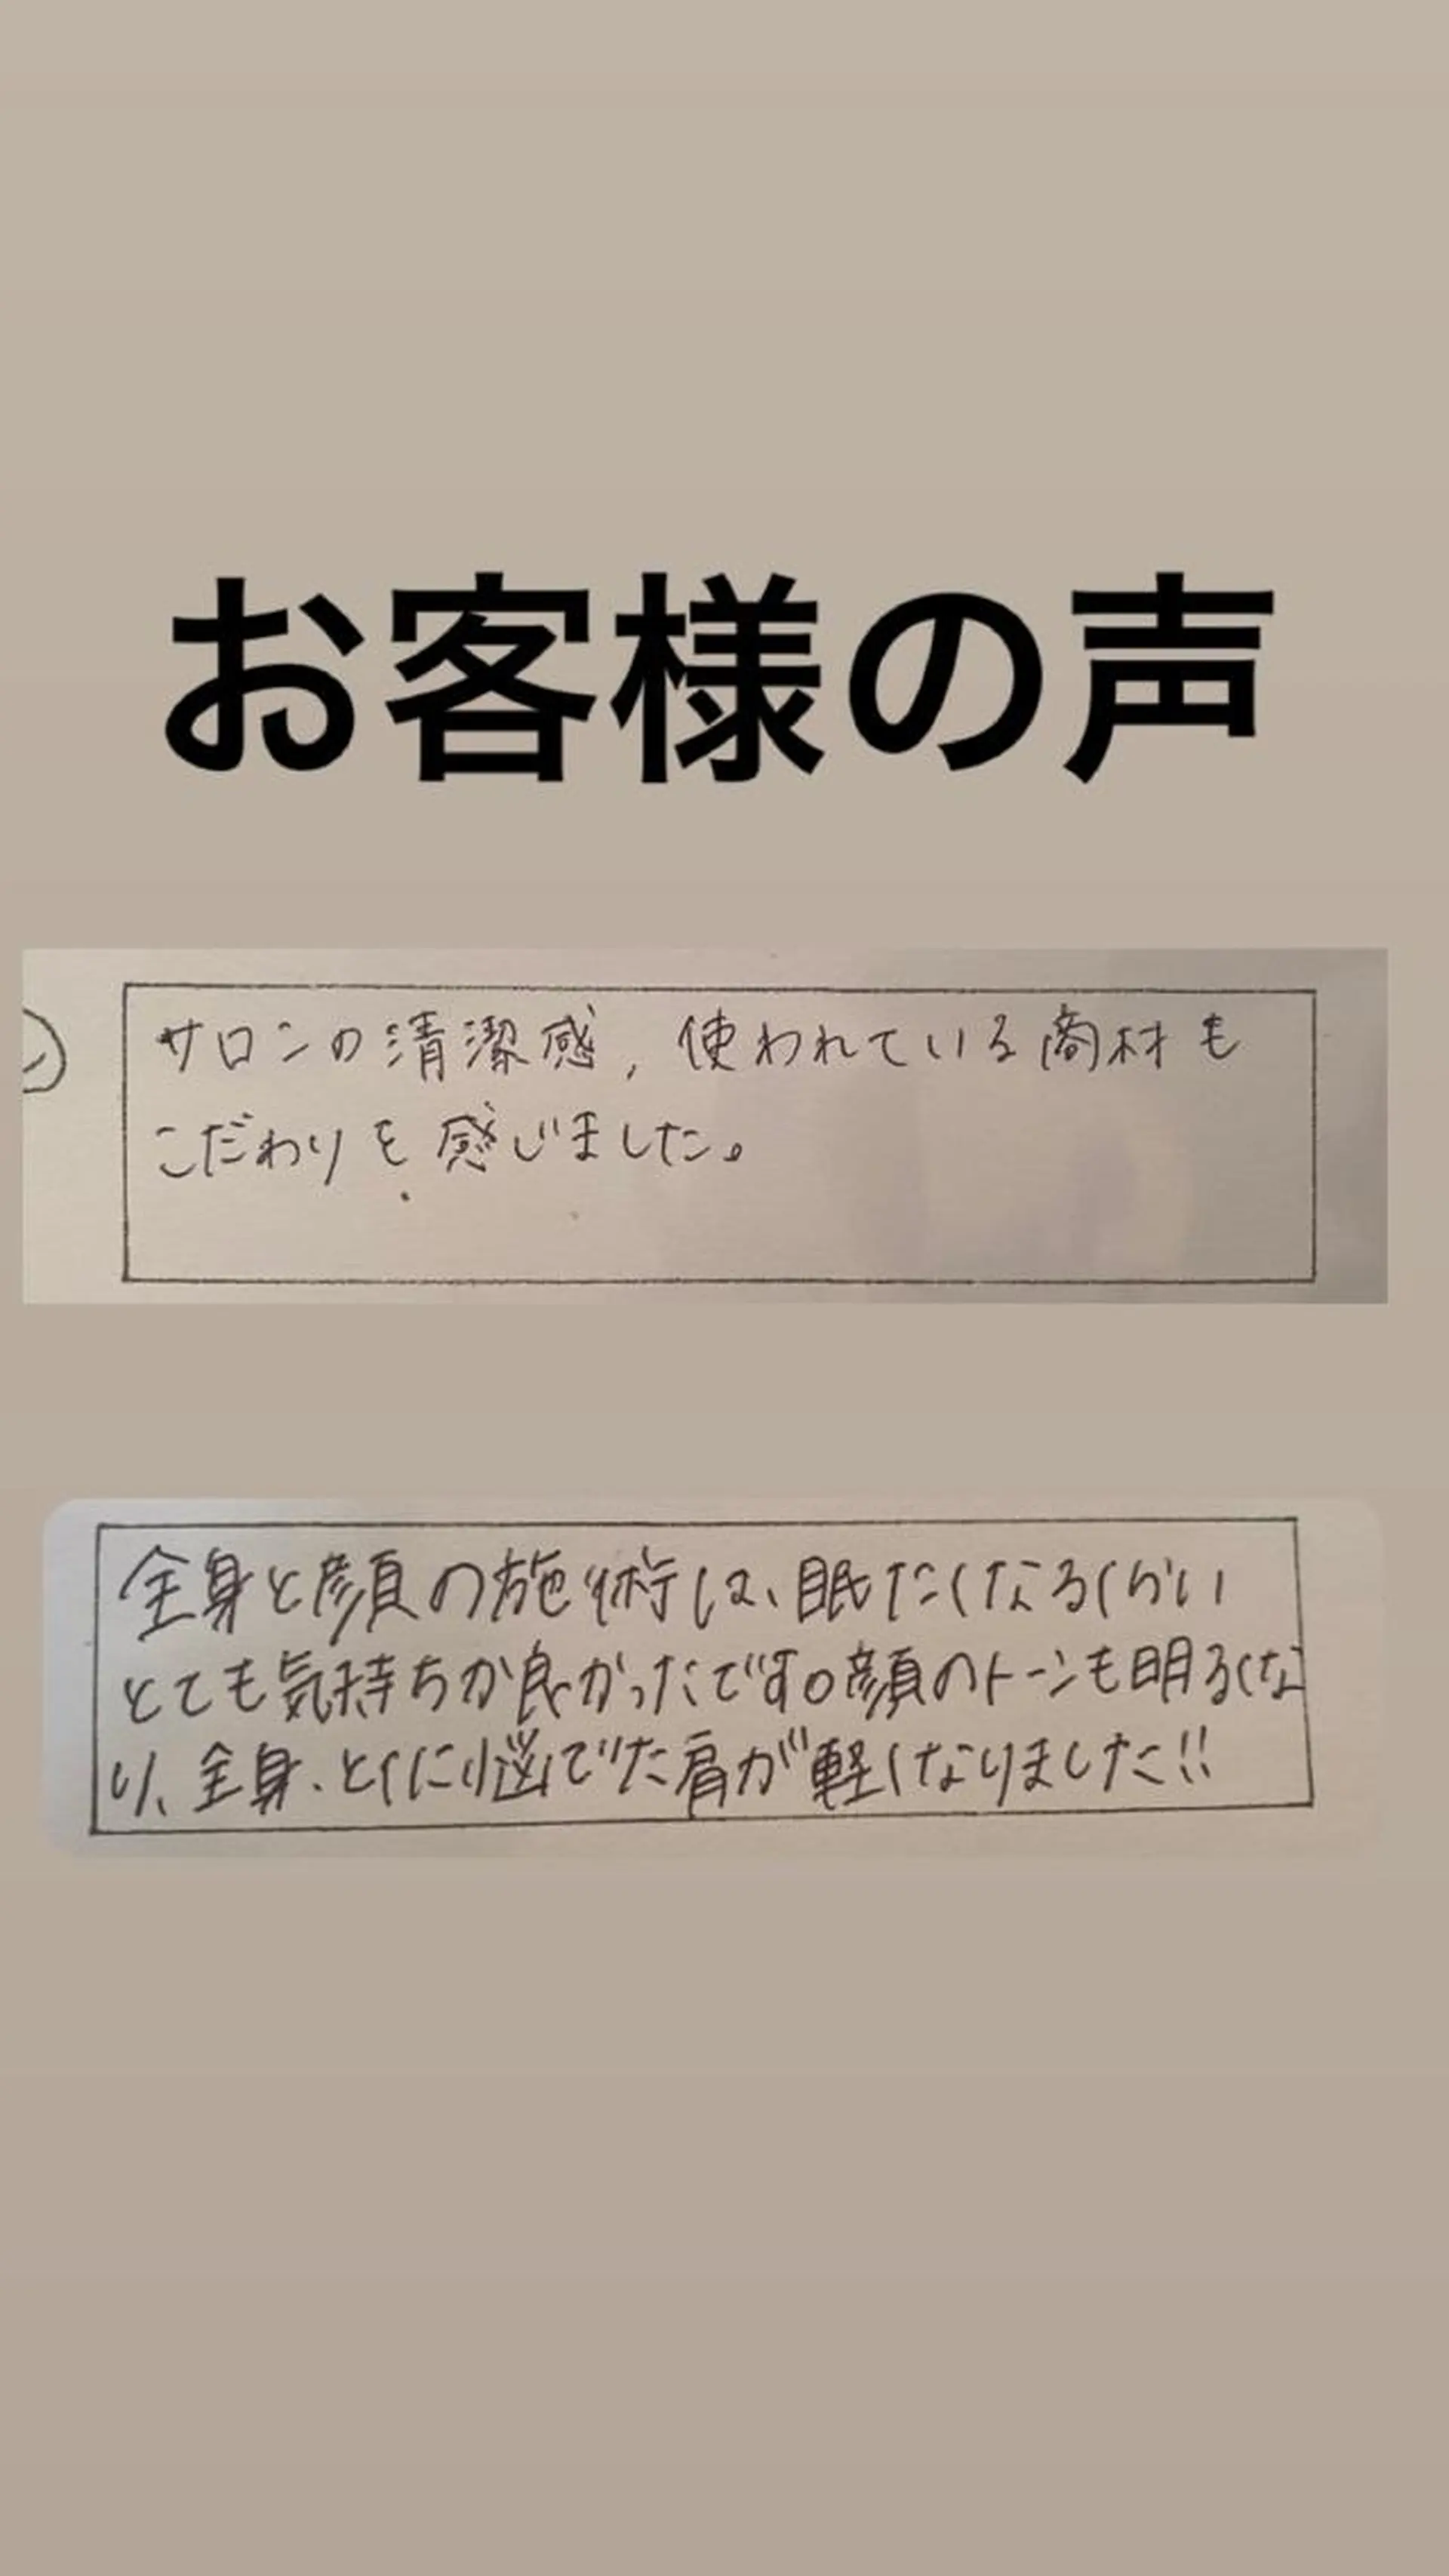 お客様の声
サロンの清潔感, 使われている商材も
こだわりを感じました。
全身と顔の施術は、眠たくなるくらい
とても気持ちか良かったです。顔のトーンも明るくな
り、全身、とくに悩でた肩が軽くなりました!!